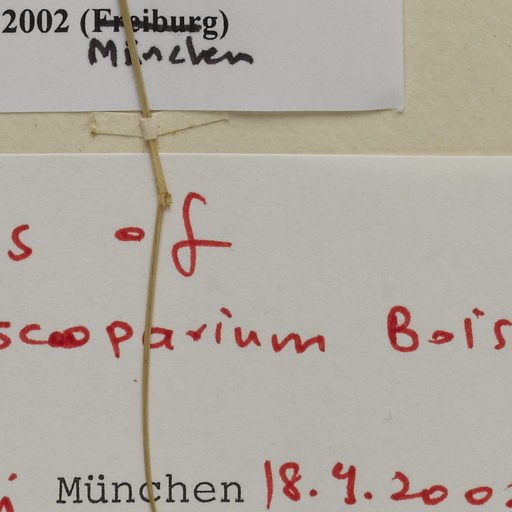 2002 (Freiburg)
München
s of
scoparium Bois
i München 18.9.2002